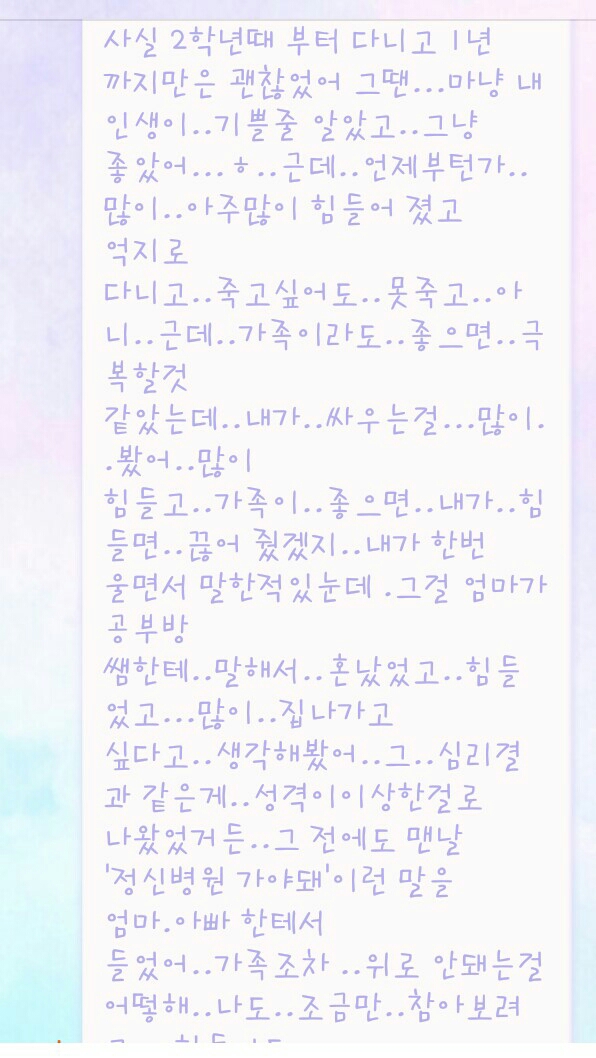 사실 2학년때 부터 다니고 1년
까지만은 괜찮었어 그땐...마냥 내
인생이..기쁠줄 알았고..그냥
좋았어...ㅎ..근데..언제부턴가..
많이..아주많이 힘들어 졌고
억지로
다니고..죽고싶어도..못죽고..아
니..근데..가족이라도..좋으면..극
복할것
같았는데..내가..싸우는걸...많이.
.봤어..많이
힘들고..가족이..좋으면..내가..힘
들면..끊어 줬겠지..내가 한번
울면서 말한적있눈데 .그걸 엄마가
공부방
쌤한테..말해서..혼났었고..힘들
었고...많이..집나가고
싶다고..생각해봤어..그..심리결
과 같은게..성격이이상한걸로
나왔었거든..그 전에도 맨날
'정신병원 가야돼'이런 말을
엄마.아빠 한테서
들었어..가족조차 ..위로 안돼는걸
어떻해..나도..조금만..참아보려